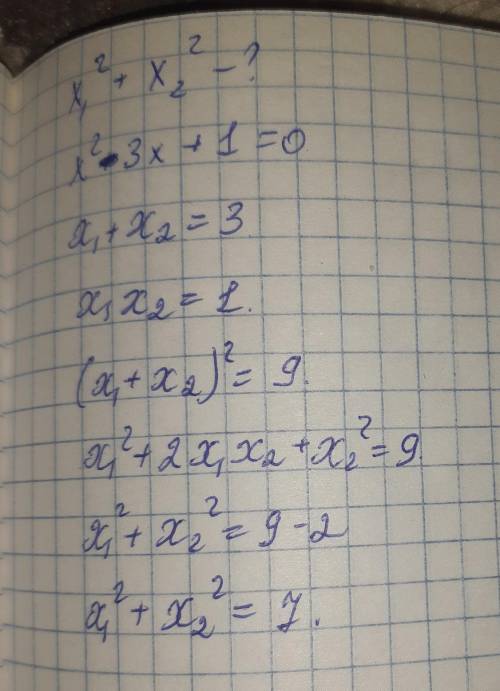 x₁² + x₂² - ?
x² - 3x + 1 = 0
x₁ + x₂ = 3
x₁ x₂ = 1.
(x₁ + x₂)² = 9.
x₁² + 2x₁x₂ + x₂² = 9.
x₁² + x₂² = 9 - 2
x₁² + x₂² = 7.